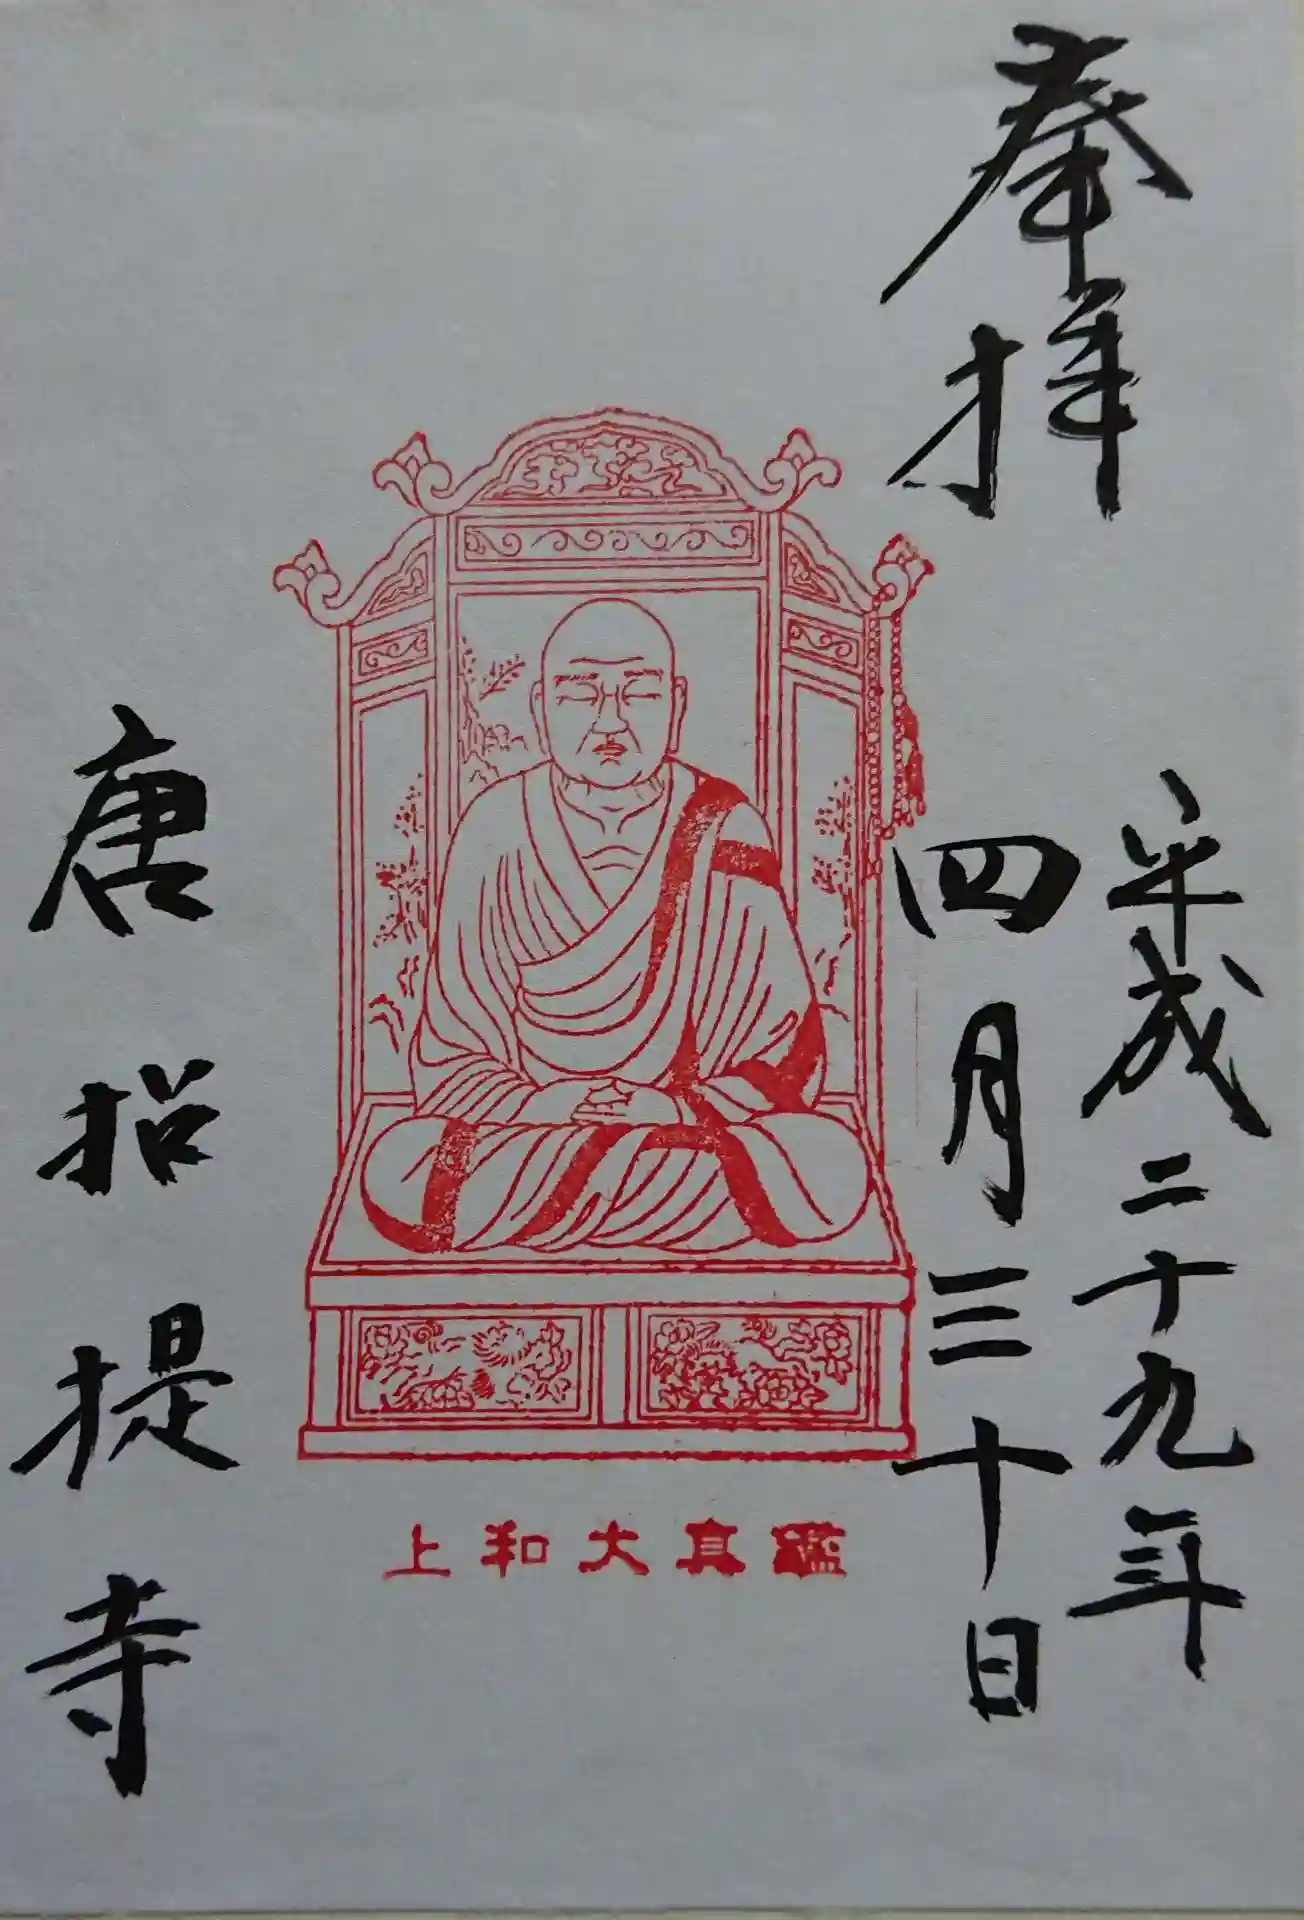 奉拝
平成二十九年
四月三十日
鑑真大和上
唐招提寺